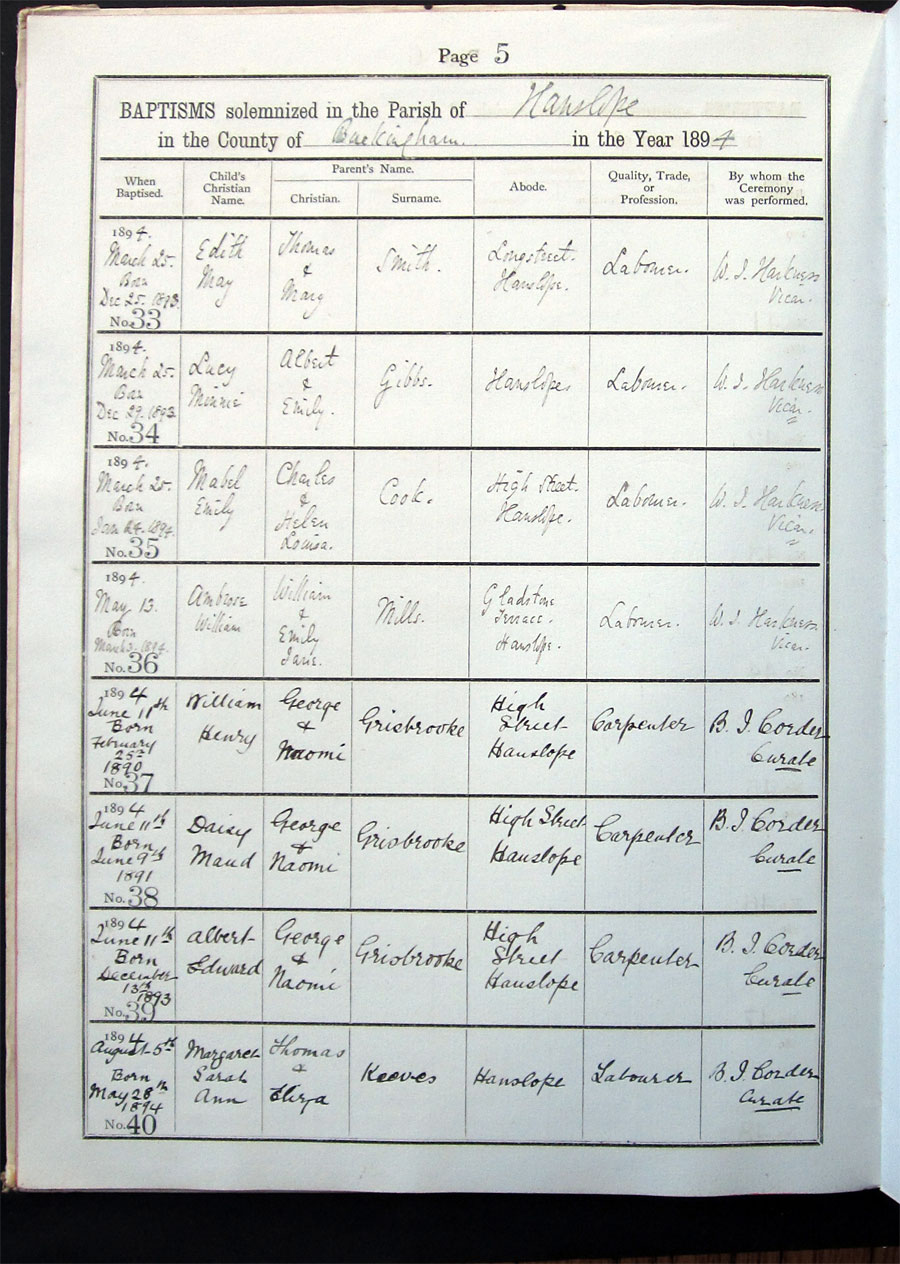 Page 5
BAPTISMS solemnized in the Parish of Hanslope
in the County of Buckingham. in the Year 1894
When Baptised.
Child's Christian Name.
Parent's Name.
Christian.
Surname.
Abode.
Quality, Trade, or Profession.
By whom the Ceremony was performed.
1894.
March 25.
Born
Dec 25. 1893.
No. 33
Edith
May
Thomas
&
Mary
Smith.
Longstreet.
Hanslope.
Labourer.
W. J. Harkness
Vicar.
1894.
March 25.
Born
Dec 29. 1893.
No. 34
Lucy
Minnie
Albert
&
Emily.
Gibbs.
Hanslope
Labourer.
W. J. Harkness
Vicar.
1894.
March 25.
Born
Jan 24. 1894.
No. 35
Mabel
Emily
Charles
&
Helen
Louisa.
Cook.
High Street.
Hanslope.
Labourer.
W. J. Harkness
Vicar.
1894.
May 13.
Born
March 3. 1894.
No. 36
Ambrose
William
William
&
Emily
Jane.
Mills.
Gladstone
Terrace.
Hanslope.
Labourer.
W. J. Harkness
Vicar.
1894
June 11th
Born
February
25th
1890
No. 37
William
Henry
George
&
Naomi
Grisbrooke
High
Street
Hanslope
Carpenter
B. J. Corder
Curate
1894
June 11th
Born
June 9th
1891
No. 38
Daisy
Maud
George
&
Naomi
Grisbrooke
High Street
Hanslope
Carpenter
B. J. Corder
Curate
1894
June 11th
Born
December
13th
1893
No. 39
Albert
Edward
George
&
Naomi
Grisbrooke
High
Street
Hanslope
Carpenter
B. J. Corder
Curate
1894
August 5th
Born
May 28th
1894
No. 40
Margaret
Sarah
Ann
Thomas
&
Eliza
Keeves
Hanslope
Labourer
B. J. Corder
Curate